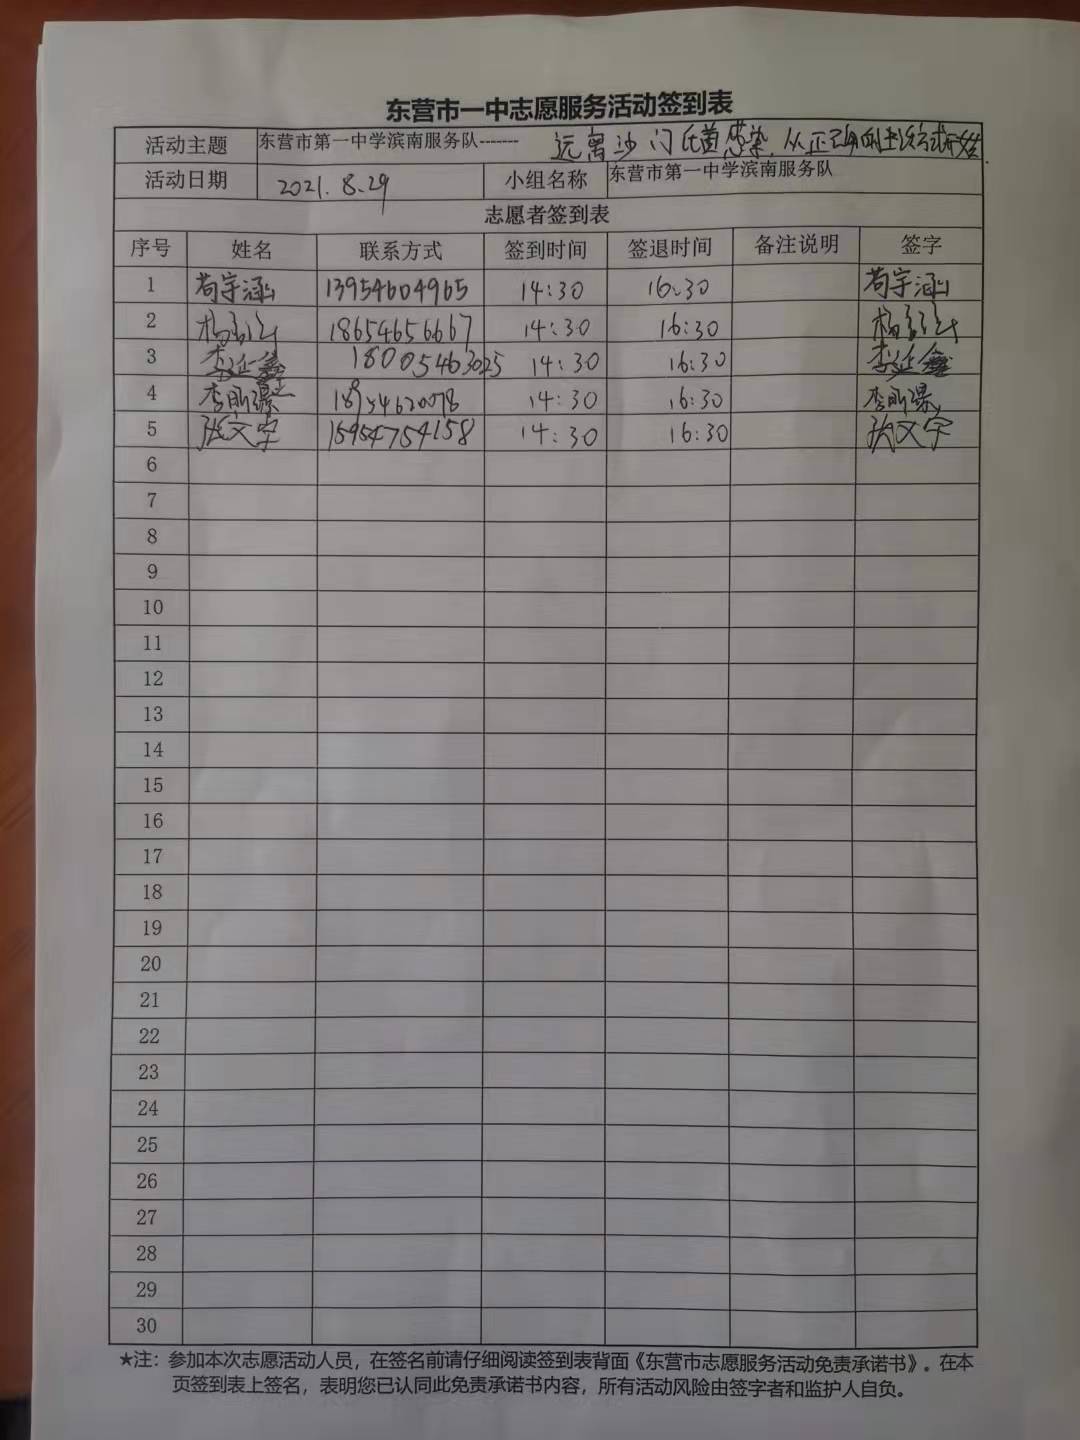 东营市一中志愿服务活动签到表
活动主题 东营市第一中学滨南服务队------- 远离沙门氏菌感染，从正确的生活方式开始.
活动日期 2021.8.29 小组名称 东营市第一中学滨南服务队
志愿者签到表
序号 姓名 联系方式 签到时间 签退时间 备注说明 签字
1 苟宇涵 13954604965 14:30 16:30 苟宇涵
2 杨 18654656667 14:30 16:30 杨
3 李延鑫 18005463025 14:30 16:30 李延鑫
4 李昕璟 18954620078 14:30 16:30 李昕璟
5 张文宇 15954754158 14:30 16:30 张文宇
6
7
8
9
10
11
12
13
14
15
16
17
18
19
20
21
22
23
24
25
26
27
28
29
30
★注：参加本次志愿活动人员，在签名前请仔细阅读签到表背面《东营市志愿服务活动免责承诺书》。在本
页签到表上签名，表明您已认同此免责承诺书内容，所有活动风险由签字者和监护人自负。